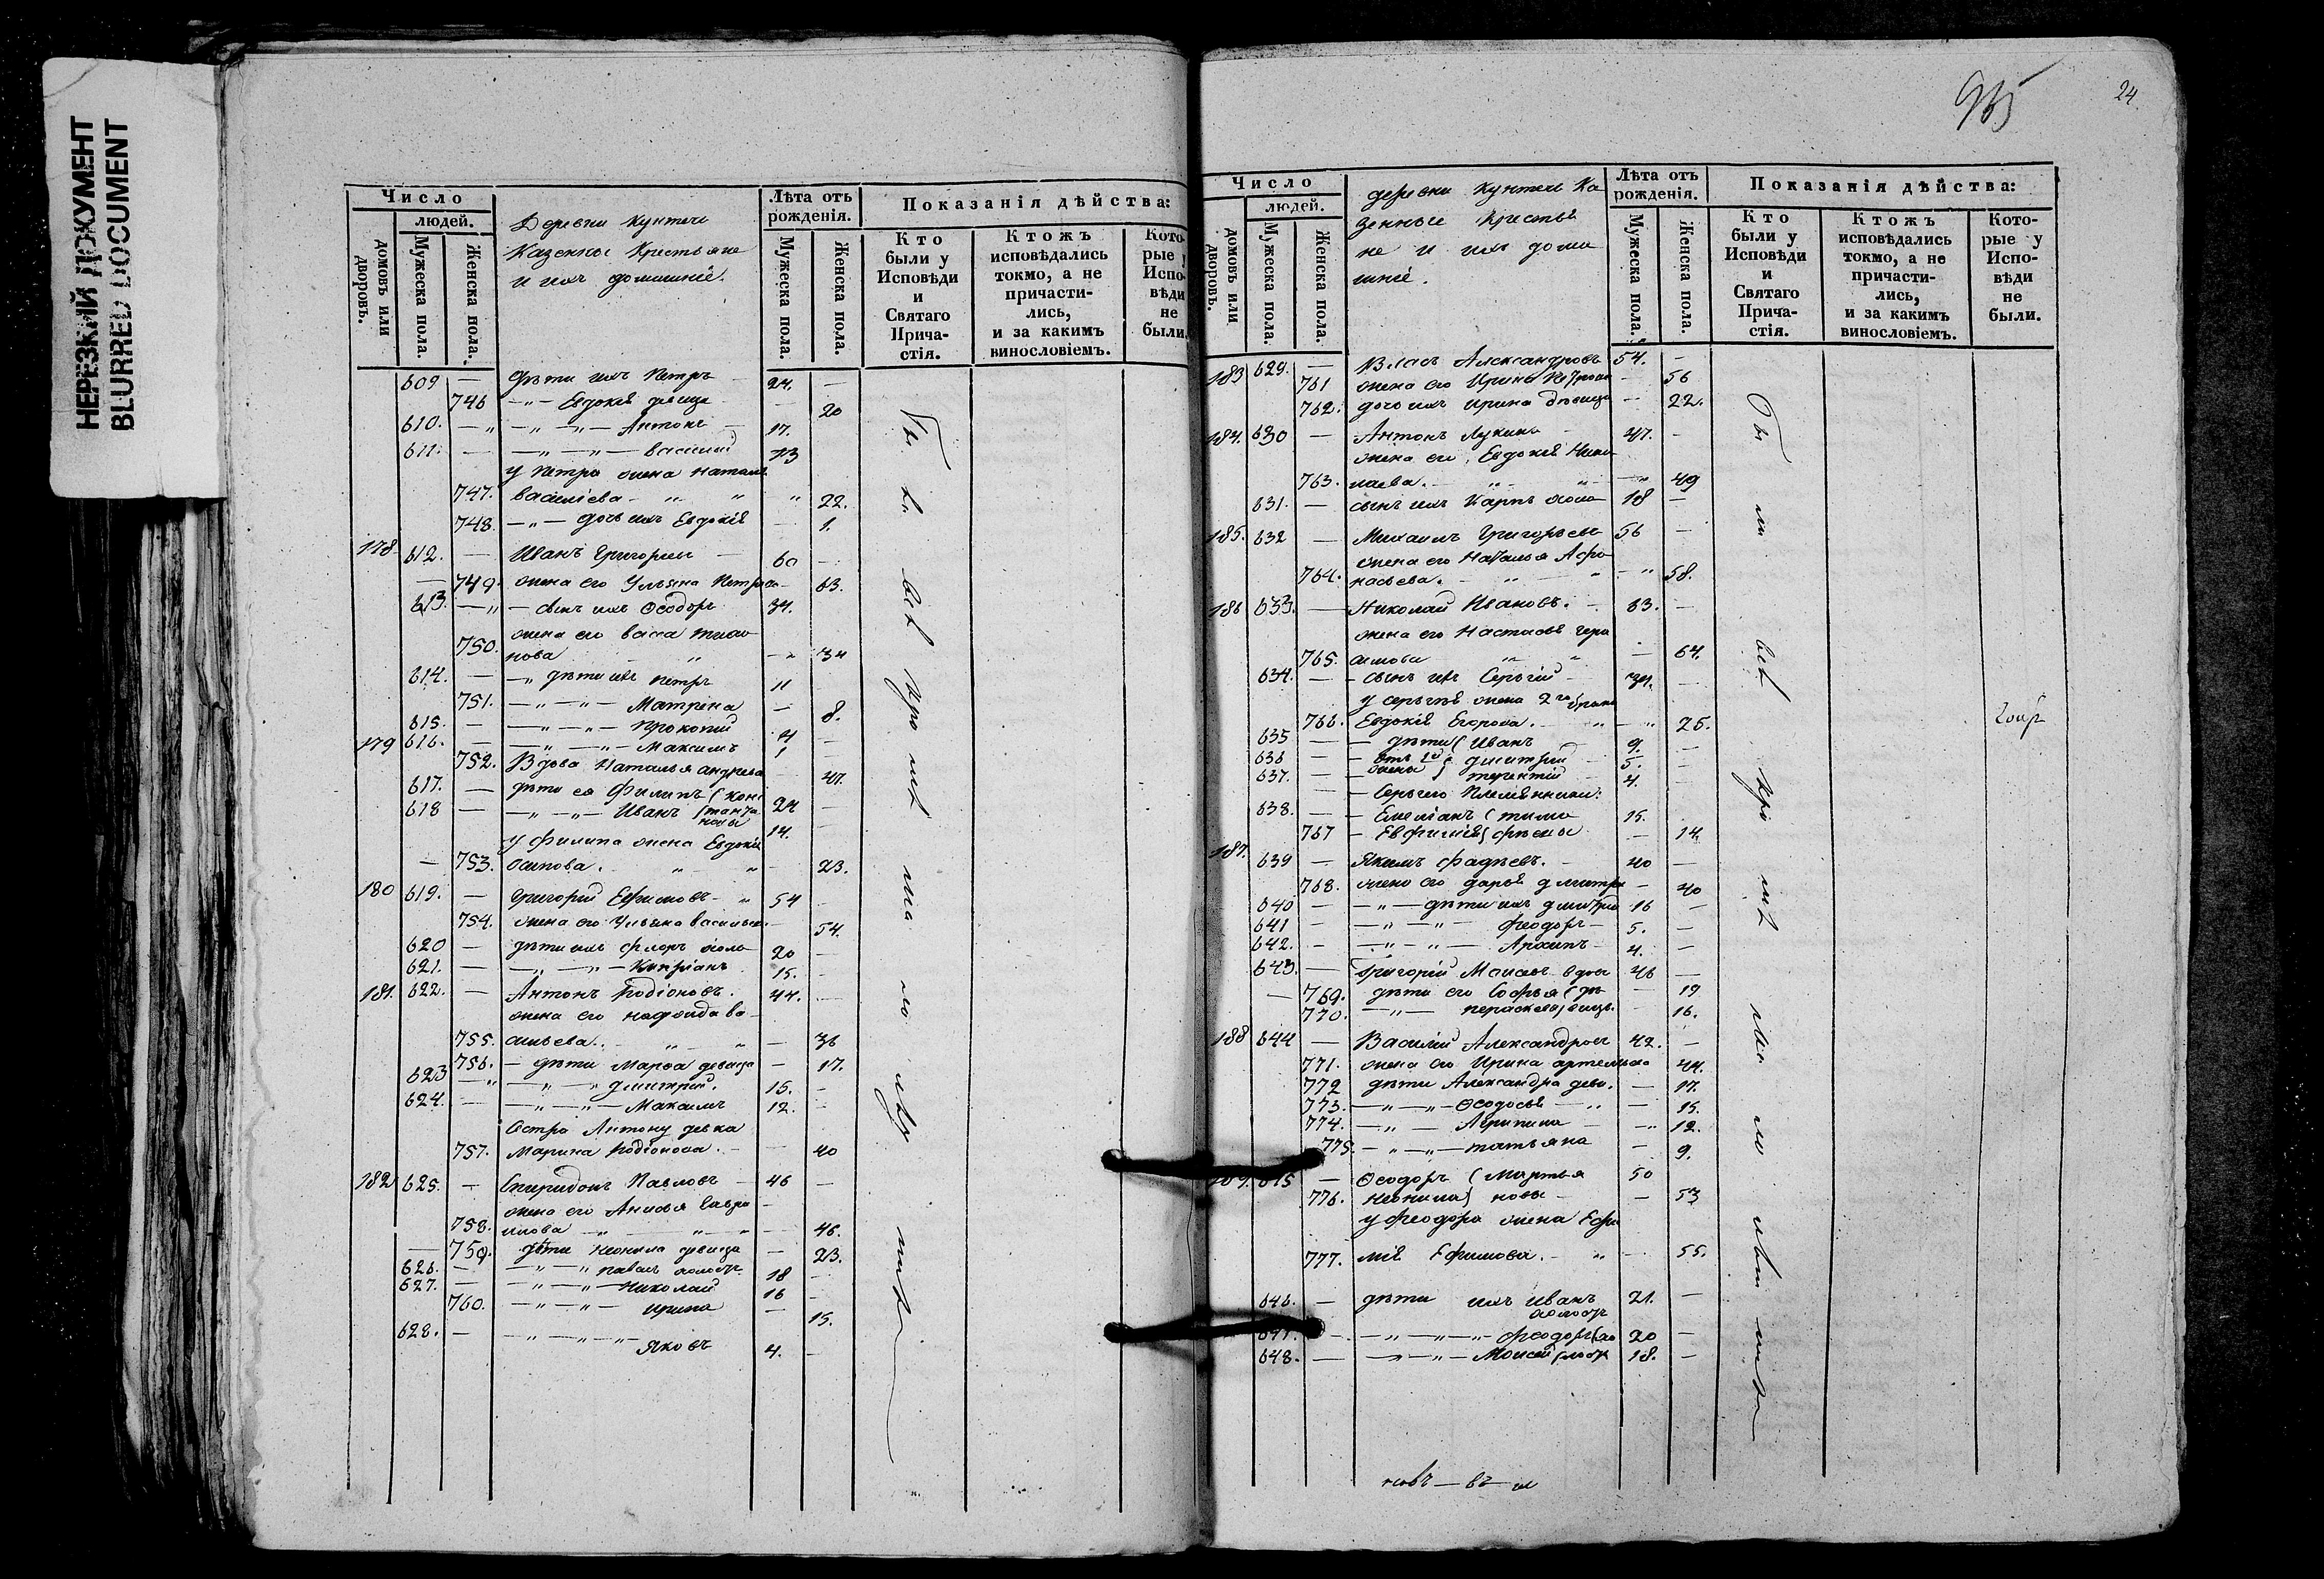 НЕРЕЗКИЙ ДОКУМЕНТ
BLURRED DOCUMENT
Число
людей.
домовъ или дворовъ.
Мужеска пола.
Женска пола.
Деревни Кунтечи
Казенные Крестьяне
и ихъ домашніе.
Лѣта отъ рожденія.
Мужеска пола.
Женска пола.
Показанія дѣйства:
Кто были у Исповѣди и Святаго Прича-стія.
Ктожъ исповѣдались токмо, а не причасти-лись, и за какимъ винословіемъ.
Кото-рые у Испо-вѣди не были.
609 — дѣти ихъ Петръ 24. —
746 —"— Евдокія дѣвица — 20
610. —"—"— Антонъ — 17.
611. —"—"— Василій 13
у Петра жена Наталья
747. Василіева - " " " 22.
748. —"— дочь ихъ Евдокія — 1.
178. 612. — Иванъ Григорьевъ — 60 —
749. жена его Ульяна Петрова — 63.
613. —"— сынъ ихъ Ѳеодоръ 34.
жена его Васса
750. нова " — 34
614. —" дѣти ихъ Петръ 11
751. —"—"— Матрена — 8.
615. —"—"— Прокопій 4 —
179 616. —"—"— Максимъ 1
752. Вдова Наталья Андреева — 47.
617. — дѣти ея Филипъ (конс 24 —
618 — —"—"— Иванъ (тантиновы 14. —
у Филипа жена Евдокія
— 753. Осипова. " " 23.
180 619. — Григорій Ефимовъ - " 54 —
754. жена его Ульяна Васильева — 54.
620 — дѣти ихъ Флоръ холо 20 —
621. — —"—"— Кипріанъ 15. —
181. 622. — Антонъ Родіоновъ. 44. —
жена его Ва-
755. сильева. " " — 36
756. — дѣти Марѳа дѣвица — 17.
623 —"—"— Дмитрій. 15. —
624. — —"—"— Максимъ 12. —
Сестра Антону девка
757. Марина Родіонова. — 40
182 625. — Спиридонъ Павловъ — 46 —
жена его Анисья Гаври
758. илова —" " " — 46.
— 759. дѣти Неонила дѣвица — 23.
626. — —"—" Павелъ холостъ 18 —
627. — —"—"— Николай 16 —
760. —"—"— Ирина — 15.
628. — —"—"—"— Яковъ 4. —
Были всѣ кромѣ малолѣтнихъ
935
24
Число
людей.
домовъ или дворовъ.
Мужеска пола.
Женска пола.
деревни Кунтечи Ка
зенные Крестья
не и ихъ дома
шніе.
Лѣта отъ рожденія.
Мужеска пола.
Женска пола.
Показанія дѣйства:
Кто были у Исповѣди и Святаго Прича-стія.
Ктожъ исповѣдались токмо, а не причасти-лись, и за какимъ винословіемъ.
Кото-рые у Испо-вѣди не были.
183 629. — Власъ Александровъ 54. —
761 жена его Ирина Петрова — 56
762. дочь ихъ Ирина дѣвица — 22.
184. 630 — Антонъ Лукинъ — 47. —
жена его Евдокія Нико
763. лаева. — " " " 49
631. — сынъ ихъ Карпъ холо 18 —
185. 632 — Михаилъ Григорьевъ 56 —
жена его Наталья Афо
764. насьева. — " " " 58.
186 633. — Николай Ивановъ. — 63. —
жена его Настасья Гера
765. симова " " — 64.
634. — — сынъ ихъ Сергій — 34. —
у Сергѣя жена 2го брака
766. Евдокія Егорова. — " — " 25.
635 — — дѣти ( Иванъ 9. —
636 — — отъ 1й Дмитрій 5. —
637. — — жены Терентій 4. —
— Сергѣя племянники:
638. — — Емеліанъ (тимо 15.
767 — Евфимія фѣевы — 14.
187. 639 — Якимъ Фадѣевъ. — 40 —
768. жена его Дарья Дмитри — 40
640 — —"— дѣти ихъ Дмитрій 16 —
641 — —"—"— Феодоръ — 5. —
642. — —"—"— Архипъ — 4. —
643. — Григорій Моисеевъ вдовъ 46 —
— 769. дѣти его Софья (дѣ — 19
770. —"— Пераскевья вицы. — 16.
188 644 — Василій Александровъ 42. —
771. жена его Ирина Артемьева 44.
772 дѣти Александра деви. — 17.
773. —"—"— Ѳеодосья — " — 15.
774. —"— Агрипина — —" 12.
775. —"—"— Татьяна — 9.
189. 645 — Ѳеодоръ ( Мартья 50
776. Неонила) новы — — 53
у Феодора жена Ефи
777. мія Ефимова. — " — 55.
646. — дѣти ихъ Иванъ 21. —
холостъ
647. — —"—"—"— Феодоръ (хо 20 —
648. — —"—"— Моисей (лосты 18. —
Были всѣ кромѣ малолѣтнихъ